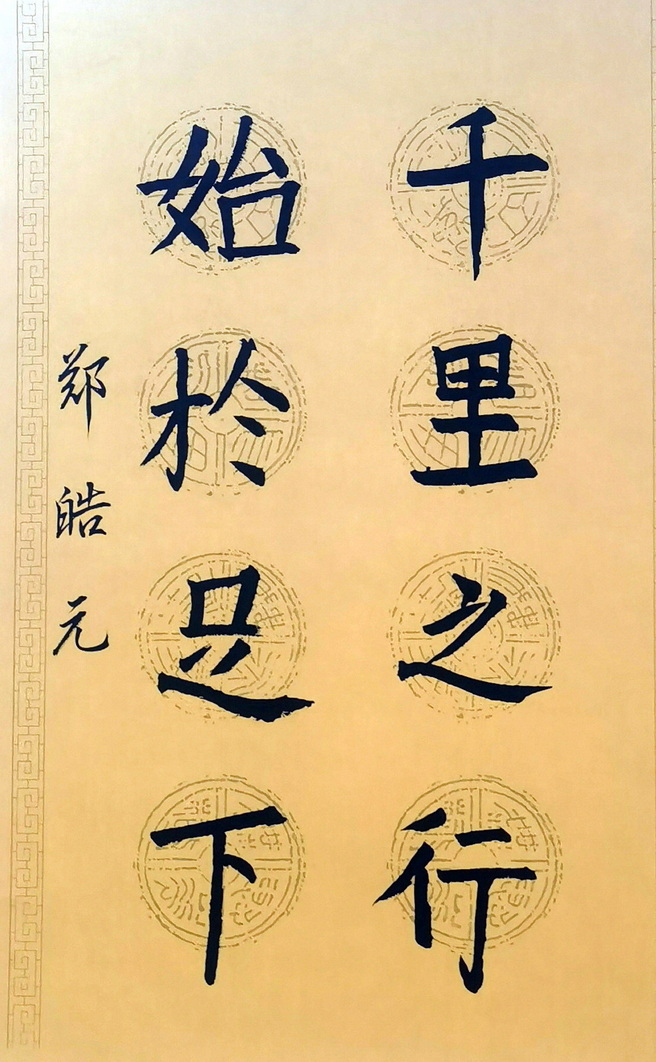 千里之行
始於足下
郑皓元